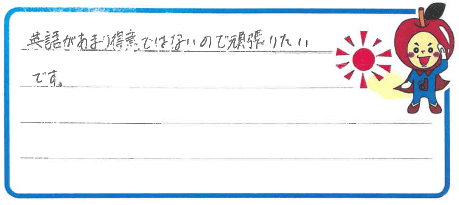 英語があまり得意ではないので頑張りたい
です。